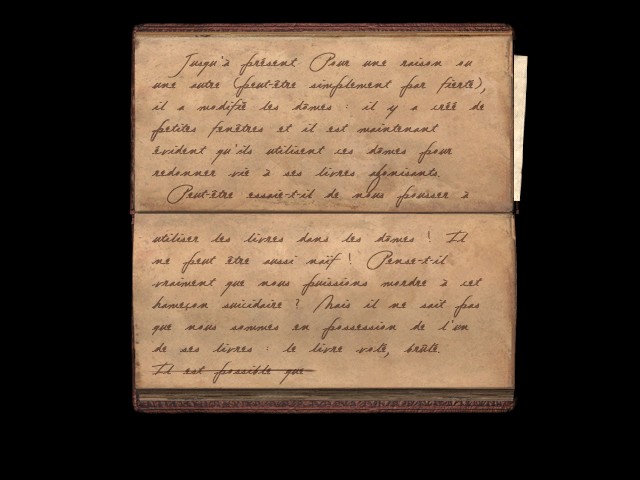 Jusqu'à présent Pour une raison ou
une autre (peut-être simplement par fierté),
il a modifié les dômes : il y a créé de
petites fenêtres et il est maintenant
évident qu'ils utilisent ces dômes pour
redonner vie à ses livres agonisants.
Peut-être essaie-t-il de nous pousser à
utiliser les livres dans les dômes ! Il
ne peut être aussi naïf ! Pense-t-il
vraiment que nous puissions mordre à cet
hameçon suicidaire ? Mais il ne sait pas
que nous sommes en possession de l'un
de ses livres : le livre volé, brûlé.
Il est possible que